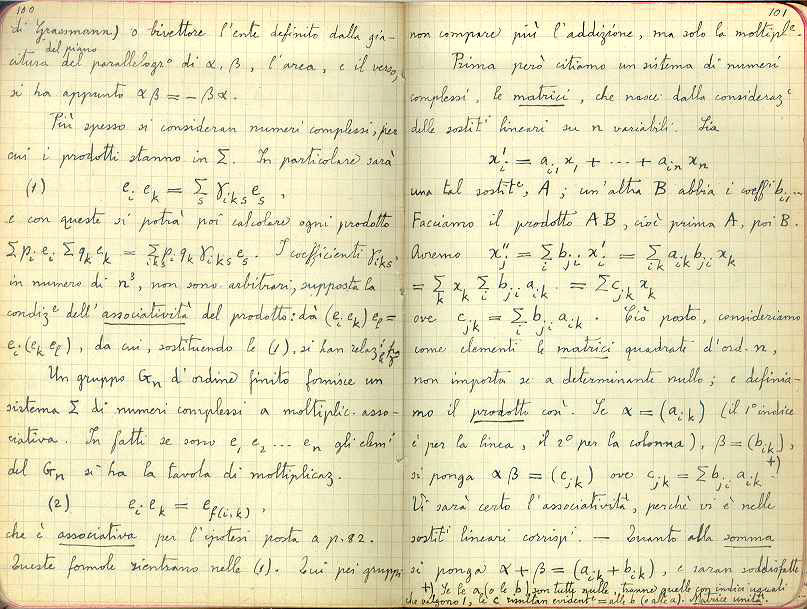 100
di Grassmann) o bivettore l'ente definito dalla gia-
del piano
citura del parallelogr° di α, β, l'area, e il verso,
si ha appunto αβ = -βα.
Più spesso si consideran numeri complessi, per
cui i prodotti stanno in Σ. In particolare sarà
(1) e_i e_k = Σ_s γ_iks e_s ,
e con queste si potrà poi calcolare ogni prodotto
Σ p_i e_i Σ q_k e_k = Σ_iks p_i q_k γ_iks e_s. I coefficienti γ_iks,
in numero di n³, non sono arbitrari, supposta la
condiz^e dell'associatività del prodotto: dà (e_i e_k) e_l =
e_i (e_k e_l), da cui, sostituendo le (1), si han relaz^i
Un gruppo G_n d'ordine finito fornisce un
sistema Σ di numeri complessi a moltiplic. asso-
ciativa. In fatti se sono e_1 e_2 ... e_n gli elem^i
del G_n si ha la tavola di moltiplicaz.
(2) e_i e_k = e_f(i,k) ,
che è associativa per l'ipotesi posta a p. 82.
Queste formole rientrano nelle (1). Qui pei gruppi
101
non compare più l'addizione, ma solo la moltipl^e.
Prima però citiamo un sistema di numeri
complessi, le matrici, che nasce dalla consideraz^e
delle sostit^i lineari su n variabili. Sia
x'_i = a_i1 x_1 + ··· + a_in x_n
una tal sostit^e, A ; un'altra B abbia i coeffi^i b_i1 ...
Facciamo il prodotto AB, cioè prima A, poi B.
Avremo x''_j = Σ_i b_ji x'_i = Σ_ik a_ik b_ji x_k
= Σ_k x_k Σ_i b_ji a_ik . = Σ c_jk x_k
ove c_jk = Σ_i b_ji a_ik . Ciò posto, consideriamo
come elementi le matrici quadrate d'ord. n,
non importa se a determinante nullo ; e definia-
mo il prodotto così. Se α = (a_ik) (il 1° indice
è per la linea, il 2° per la colonna), β = (b_ik),
si ponga αβ = (c_jk) ove c_jk = Σ b_ji a_ik . +)
Vi sarà certo l'associatività, perchè vi è nelle
sostit^i lineari corrisp^i. — Quanto alla somma
si ponga α + β = (a_ik + b_ik), e saran soddisfatte
+) Se le a (o le b) son tutte nulle, tranne quelle con indici uguali
che valgono 1, le c risultan evident^e = alle b (o alle a). Matrice unità.